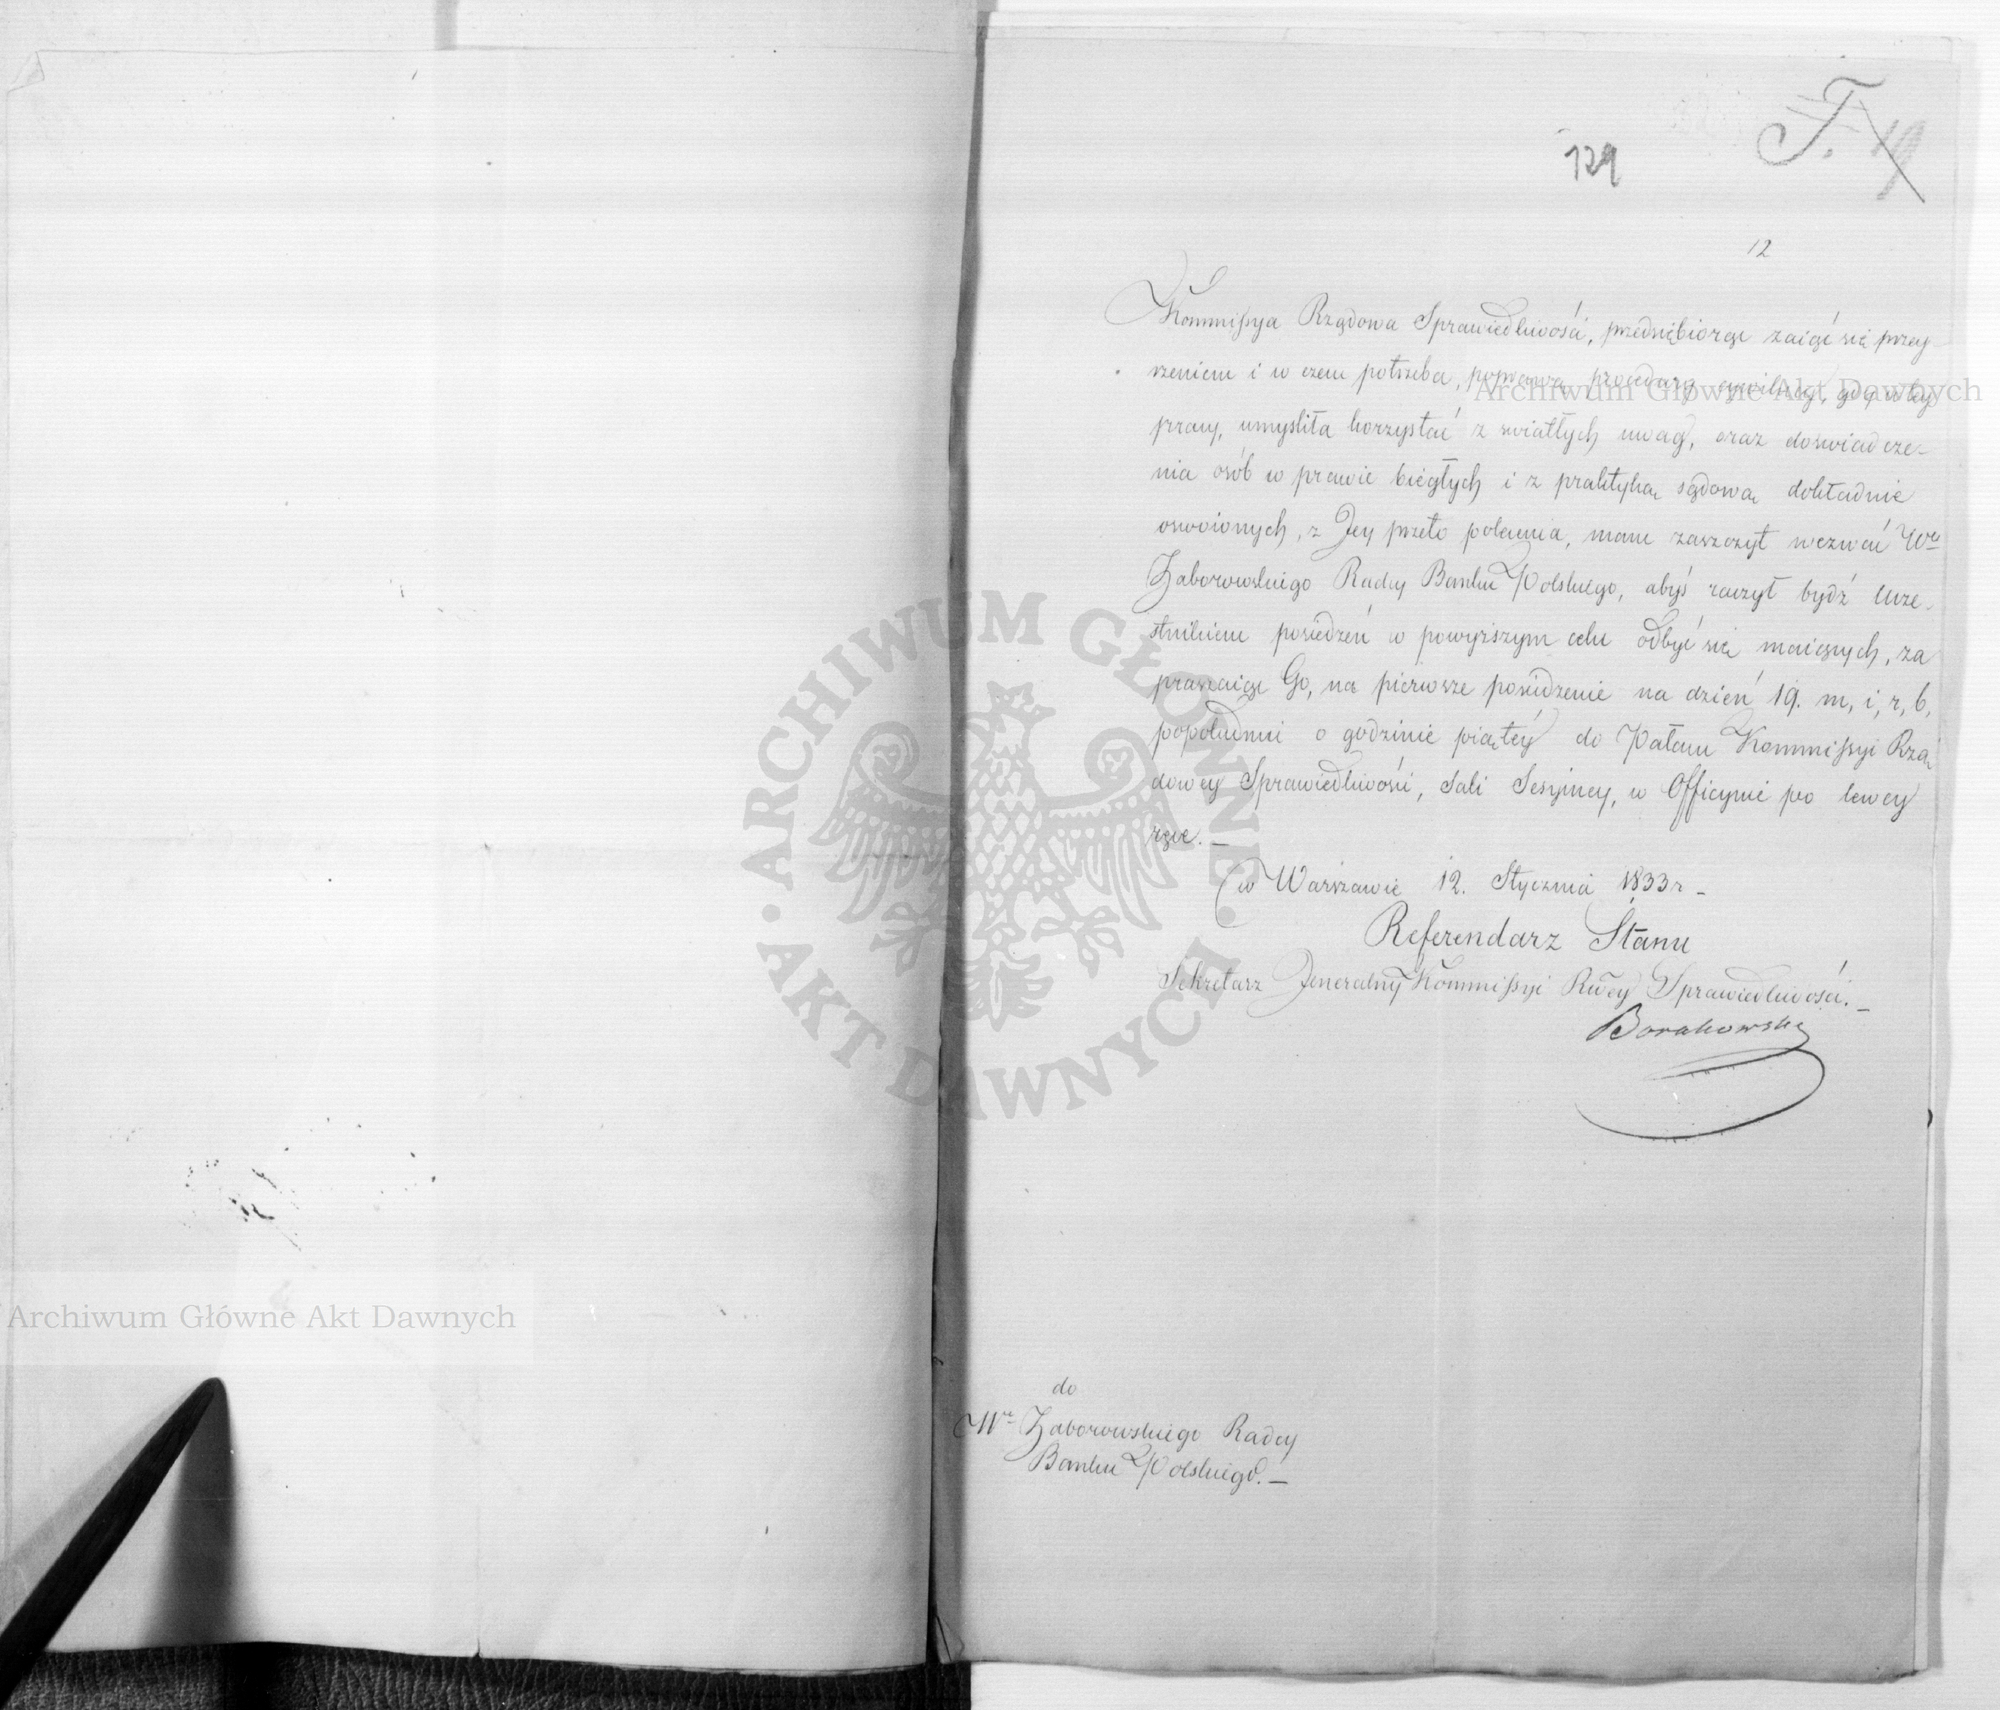 T. 19
129
12
Kommissya Rządowa Sprawiedliwości, przedsiębiorąc zaiąć się przey-
rzeniem i w czem potrzeba, poprawą procedury cywilney, gdy w tey
pracy, umyśliła korzystać z światłych uwag, oraz doświadcze-
nia osób w prawie biegłych i z praktyką sądową dokładnie
oswoionych, z Jey przeto polecenia, mam zaszczyt wezwać Wo
Zaborowskiego Radcy Banku Polskiego, abyś raczył bydź Ucze-
stnikiem posiedzeń w powyższym celu odbyć się maiących, za
praszaiąc Go, na pierwsze posiedzenie na dzień 19. m, i, r, b,
popołudniu o godzinie piątéy do Pałacu Kommissyi Rzą
dowey Sprawiedliwości, Sali Sessyiney, w Officynie po lewey
ręce. —
w Warszawie 12. Stycznia 1833 r —
Referendarz Stanu
Sekretarz Jeneralny Kommissyi Rwey Sprawiedliwości. —
do
Wo Zaborowskiego Radcy
Banku Polskiego. —
ARCHIWUM GŁÓWNE • AKT DAWNYCH •
Archiwum Główne Akt Dawnych
Archiwum Główne Akt Dawnych